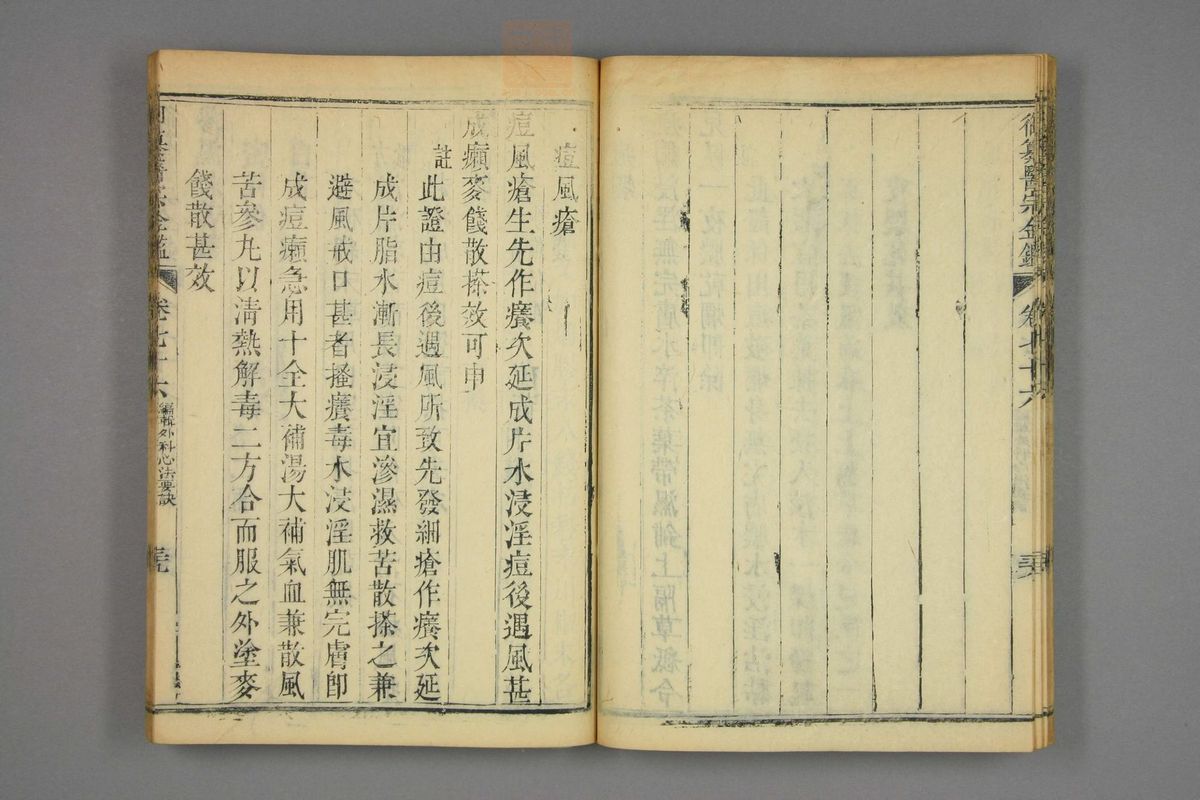 御纂醫宗金鑑 卷七十六
痘風瘡
痘風瘡生先作癢次延成片水浸淫痘後遇風甚
成癩麥餞散搽效可申
註此證由痘後遇風所致先發細瘡作癢次延
成片脂水漸長浸淫宜滲濕救苦散搽之兼
避風戒口甚者搔癢毒水浸淫肌無完膚卽
成痘癩急用十全大補湯大補氣血兼散風
苦參丸以淸熱解毒二方合而服之外塗麥
餞散甚效
醫宗金鑑 卷七十六 編輯外科心法要訣